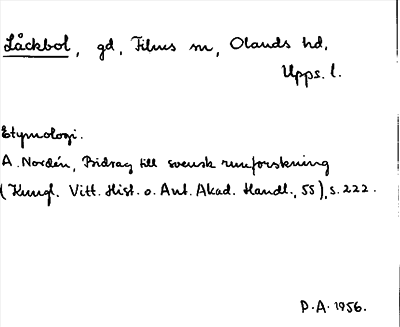 Låckbol, gd, Films sn, Olands hd,
Upps. l.
Etymologi.
A. Nordén, Bidrag till svensk runforskning
(Kungl. Vitt. Hist. o. Ant. Akad. Handl., 55), s. 222.
P.A. 1956.